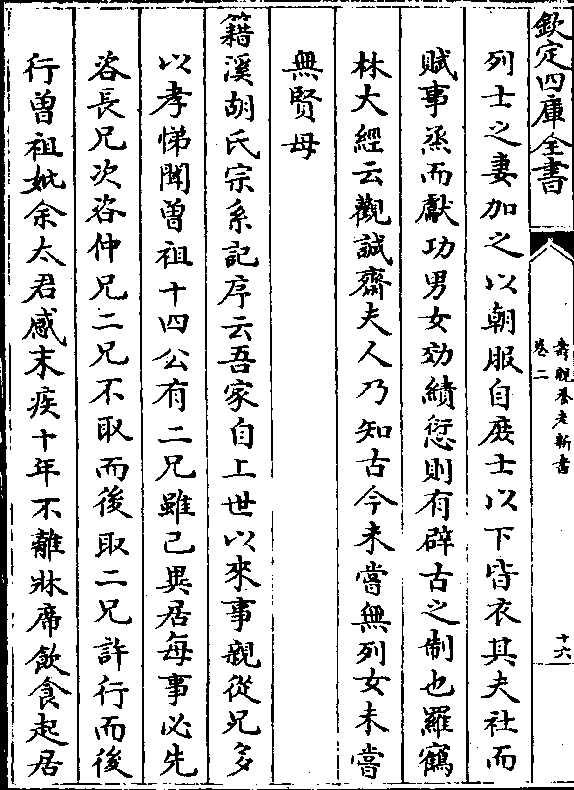 欽定四庫全書
壽親養老新書
卷二
十六
列士之妻加之以朝服自庶士以下皆衣其夫社而
賦事烝而獻功男女効績愆則有辟古之制也羅鶴
林大經云觀誠齋夫人乃知古今未嘗無列女未嘗
無賢母
籍溪胡氏宗系記序云吾家自上世以來事親從兄多
以孝悌聞曽祖十四公有二兄雖已異居每事必先
咨長兄次咨仲兄二兄不取而後取二兄許行而後
行曽祖妣余太君感末疾十年不離牀席飲食起居